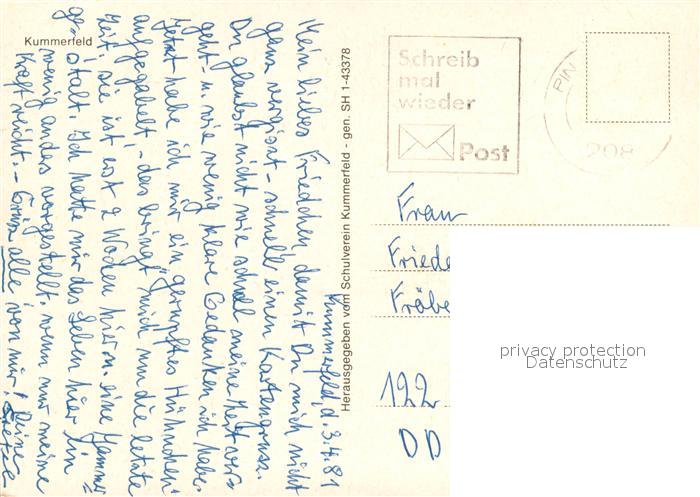 Kummerfeld
Kummerfeld, d. 3.4.81
Mein liebes Friedchen, damit Du mich nicht
ganz vergisst - schnell einen Kartengruss.
Du glaubst nicht wie schnell meine Zeit ver-
geht - u. wie wenig klare Gedanken ich habe.
Jetzt habe ich mir ein gerupftes Hühnchen
aufgegabelt - das bringt mich um die letzte
Zeit, sie ist erst 2 Wochen hier u. eine Jammer=
ge-stalt. Ich hatte mir das Leben hier ein
wenig anders vorgestellt, wenn nur meine
Kraft reicht. - Grüsse alle von mir! Deine
Herausgegeben vom Schulverein Kummerfeld - gen. SH 1-43378
Schreib
mal
wieder
Post
PIN
208
Frau
Friede
Fröbe
122
DD
privacy protection
Datenschutz